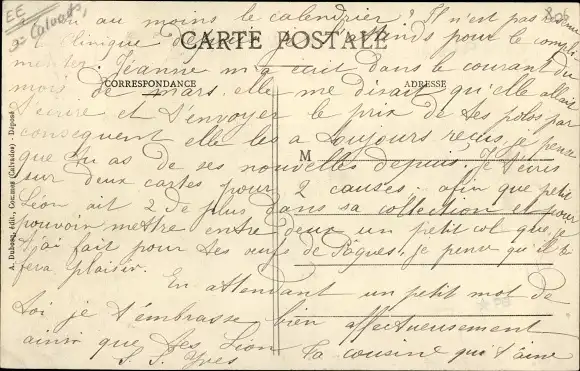 EE
2e Calvados
au moins le calendrier? Il n'est pas
clinique depuis j'attends pour le complé
menter. Jeanne m'a écrit dans le courant du
mois de mars. elle me disait qu'elle allait
t'écrire et t'envoyer le prix de tes polos par
conséquent elle les a toujours reçus, je pense
que tu as de ses nouvelles depuis. Je t'écris
sur deux cartes pour 2 causes. afin que petit
Léon ait 2 de plus dans sa collection et pour
pouvoir mettre entre deux un petit col que je
t'ai fait pour tes œufs de Pâques, je pense qu'il te
fera plaisir.
En attendant un petit mot de
toi je t'embrasse bien affectueusement
ainsi que tes Léon
Ta cousine qui t'aime
Yves
CARTE POSTALE
CORRESPONDANCE
ADRESSE
M
A. Dubosq, édit., (Calvados) - Déposé